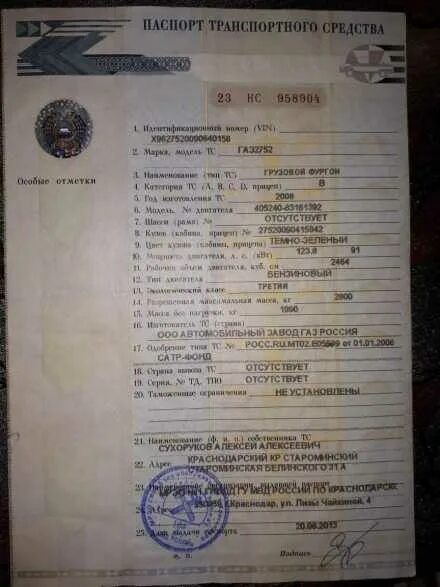 ПАСПОРТ ТРАНСПОРТНОГО СРЕДСТВА
23 НС 958904
Особые отметки
1. Идентификационный номер (VIN)
X9627520090640156
2. Марка, модель ТС ГАЗ2752
3. Наименование (тип ТС) ГРУЗОВОЙ ФУРГОН
4. Категория ТС (А, В, С, D, прицеп) В
5. Год изготовления ТС 2008
6. Модель, № двигателя 405240-83161392
7. Шасси (рама) № ОТСУТСТВУЕТ
8. Кузов (кабина, прицеп) № 27520090415942
9. Цвет кузова (кабины, прицепа) ТЕМНО-ЗЕЛЕНЫЙ
10. Мощность двигателя, л. с. (кВт) 123.8 91
11. Рабочий объем двигателя, куб. см 2464
12. Тип двигателя БЕНЗИНОВЫЙ
13. Экологический класс ТРЕТИЙ
14. Разрешенная максимальная масса, кг 2800
15. Масса без нагрузки, кг
16. Изготовитель ТС (страна)
ООО АВТОМОБИЛЬНЫЙ ЗАВОД ГАЗ РОССИЯ
17. Одобрение типа ТС № РОСС.RU.МТ02. от 01.01.2006
САТР-ФОНД
18. Страна вывоза ТС ОТСУТСТВУЕТ
19. Серия, № ТД, ТПО ОТСУТСТВУЕТ
20. Таможенные ограничения НЕ УСТАНОВЛЕНЫ
21. Наименование (ф. и. о.) собственника ТС
СУХОРУКОВ АЛЕКСЕЙ АЛЕКСЕЕВИЧ
22. Адрес КРАСНОДАРСКИЙ КР СТАРОМИНСКИЙ
СТАРОМИНСКАЯ БЕЛИНСКОГО 31 А
23. Наименование организации, выдавшей паспорт
ГУ МВД РОССИИ ПО КРАСНОДАРСК
24. Адрес г.Краснодар, ул. Лизы Чайкиной, 4
25. Дата выдачи паспорта 20.08.2013
М. П. Подпись